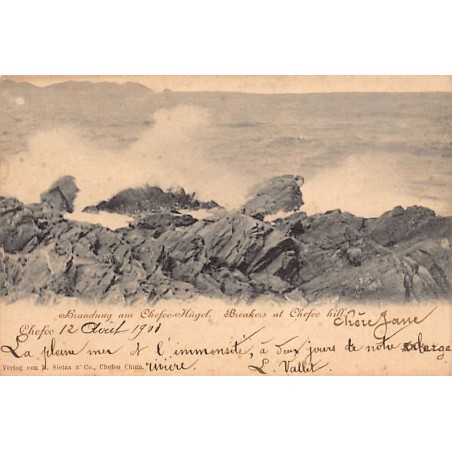 Brandung am Chefoo-Hügel. Breakers at Chefoo hill.
Chère Jane
Chefoo 12 Août 1901
La pleine mer et l'immensité, à deux jours de notre
rivière
L. Vallet
Verlag von H. Sietas & Co., Chefoo China.